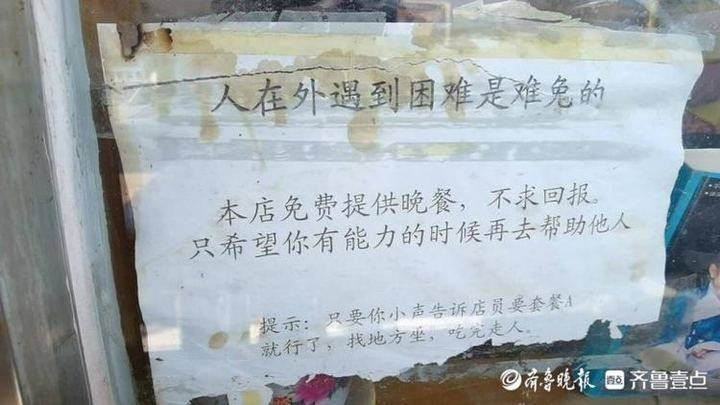 人在外遇到困难是难免的
本店免费提供晚餐，不求回报。
只希望你有能力的时候再去帮助他人
提示：只要你小声告诉店员要套餐A
就行了，找地方坐，吃完走人。
齐鲁晚报 齐鲁壹点